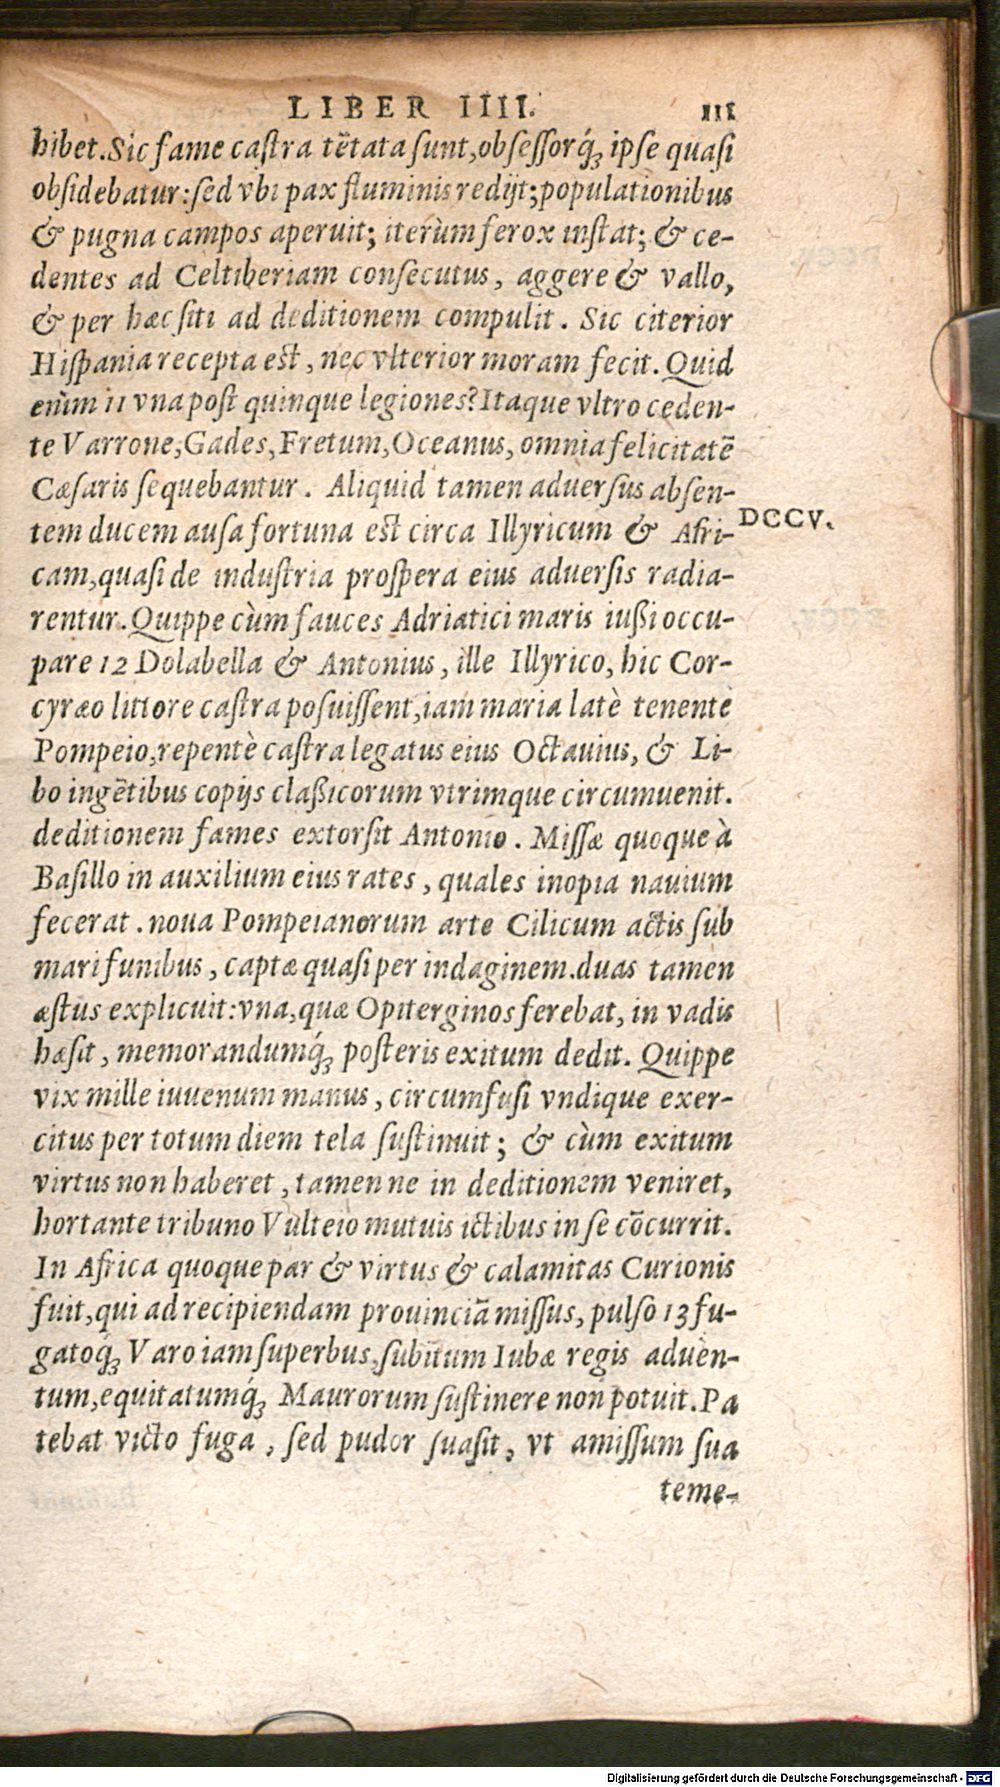 LIBER IIII. 111
hibet. Sic fame castra tẽtata sunt, obsessorq́ꝫ ipse quasi
obsidebatur: sed vbi pax fluminis redijt; populationibus
& pugna campos aperuit; iterùm ferox instat; & ce-
dentes ad Celtiberiam consecutus, aggere & vallo,
& per hæc siti ad deditionem compulit. Sic citerior
Hispania recepta est, nec vlterior moram fecit. Quid
enim 11 vna post quinque legiones? Itaque vltro ceden-
te Varrone, Gades, Fretum, Oceanus, omnia felicitatẽ
Cæsaris sequebantur. Aliquid tamen adversus absen-
tem ducem ausa fortuna est circa Illyricum & Afri-
DCCV.
cam, quasi de industria prospera eius adversis radia-
rentur. Quippe cùm fauces Adriatici maris iussi occu-
pare 12 Dolabella & Antonius, ille Illyrico, hic Cor-
cyræo littore castra posuissent, iam maria latè tenente
Pompeio, repentè castra legatus eius Octauius, & Li-
bo ingẽtibus copijs classicorum vtrimque circumuenit.
deditionem fames extorsit Antonio. Missæ quoque à
Basillo in auxilium eius rates, quales inopia nauium
fecerat. noua Pompeianorum arte Cilicum actis sub
mari funibus, captæ quasi per indaginem. duas tamen
æstus explicuit: vna, quæ Opiterginos ferebat, in vadis
hæsit, memorandumq́ꝫ posteris exitum dedit. Quippe
vix mille iuvenum manus, circumfusi vndique exer-
citus per totum diem tela sustinuit; & cùm exitum
virtus non haberet, tamen ne in deditionem veniret,
hortante tribuno Vulteio mutuis ictibus in se cõcurrit.
In Africa quoque par & virtus & calamitas Curionis
fuit, qui ad recipiendam prouinciã missus, pulso 13 fu-
gatoq́ꝫ Varo iam superbus, subitum Iubæ regis adven-
tum, equitatumq́ꝫ Maurorum sustinere non potuit. Pa
tebat victo fuga, sed pudor suasit, vt amissum sua
teme-
Digitalisierung gefördert durch die Deutsche Forschungsgemeinschaft - DFG